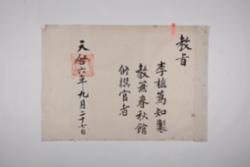 教旨
李植爲知製
教兼春秋館
修撰官者
天啓六年九月二十日